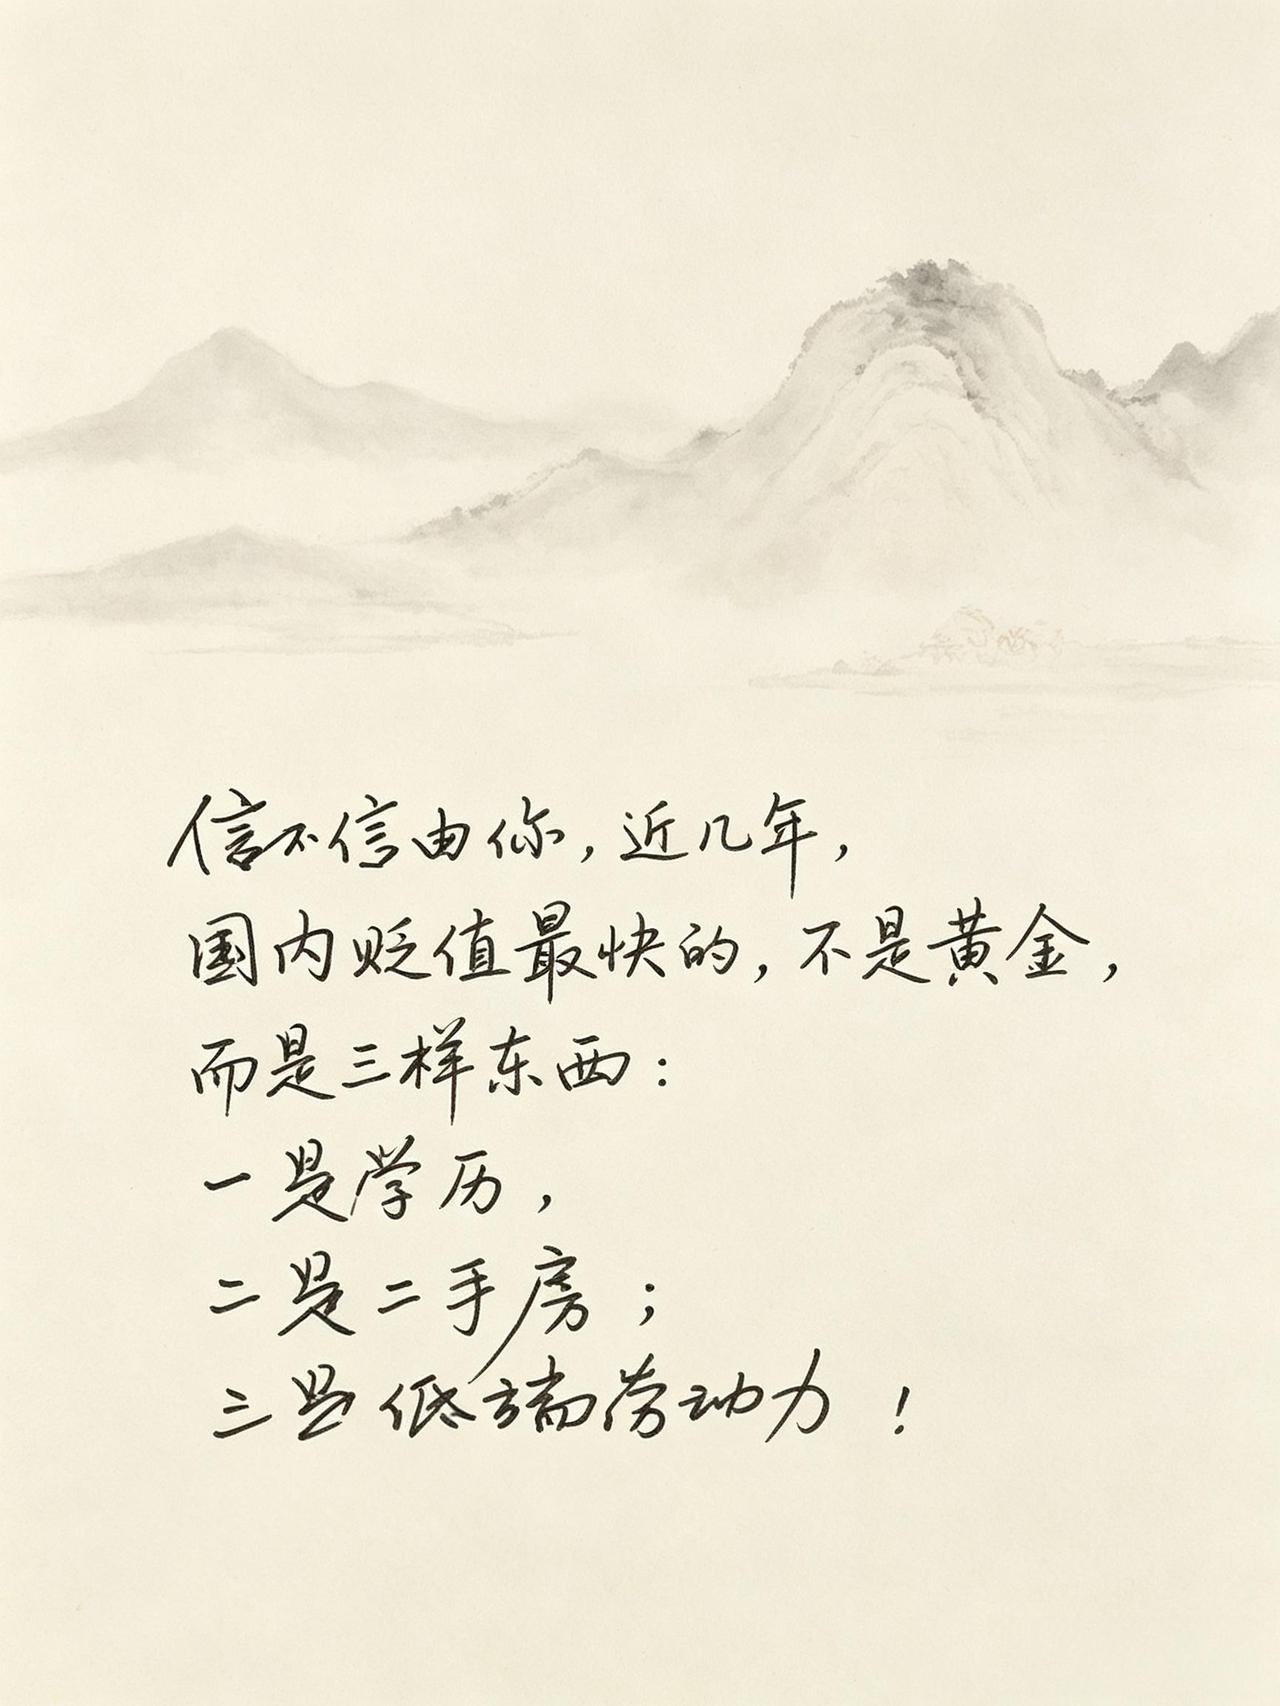 信不信由你,近几年,
国内贬值最快的,不是黄金,
而是三样东西:
一是学历,
二是二手房;
三是低端劳动力!